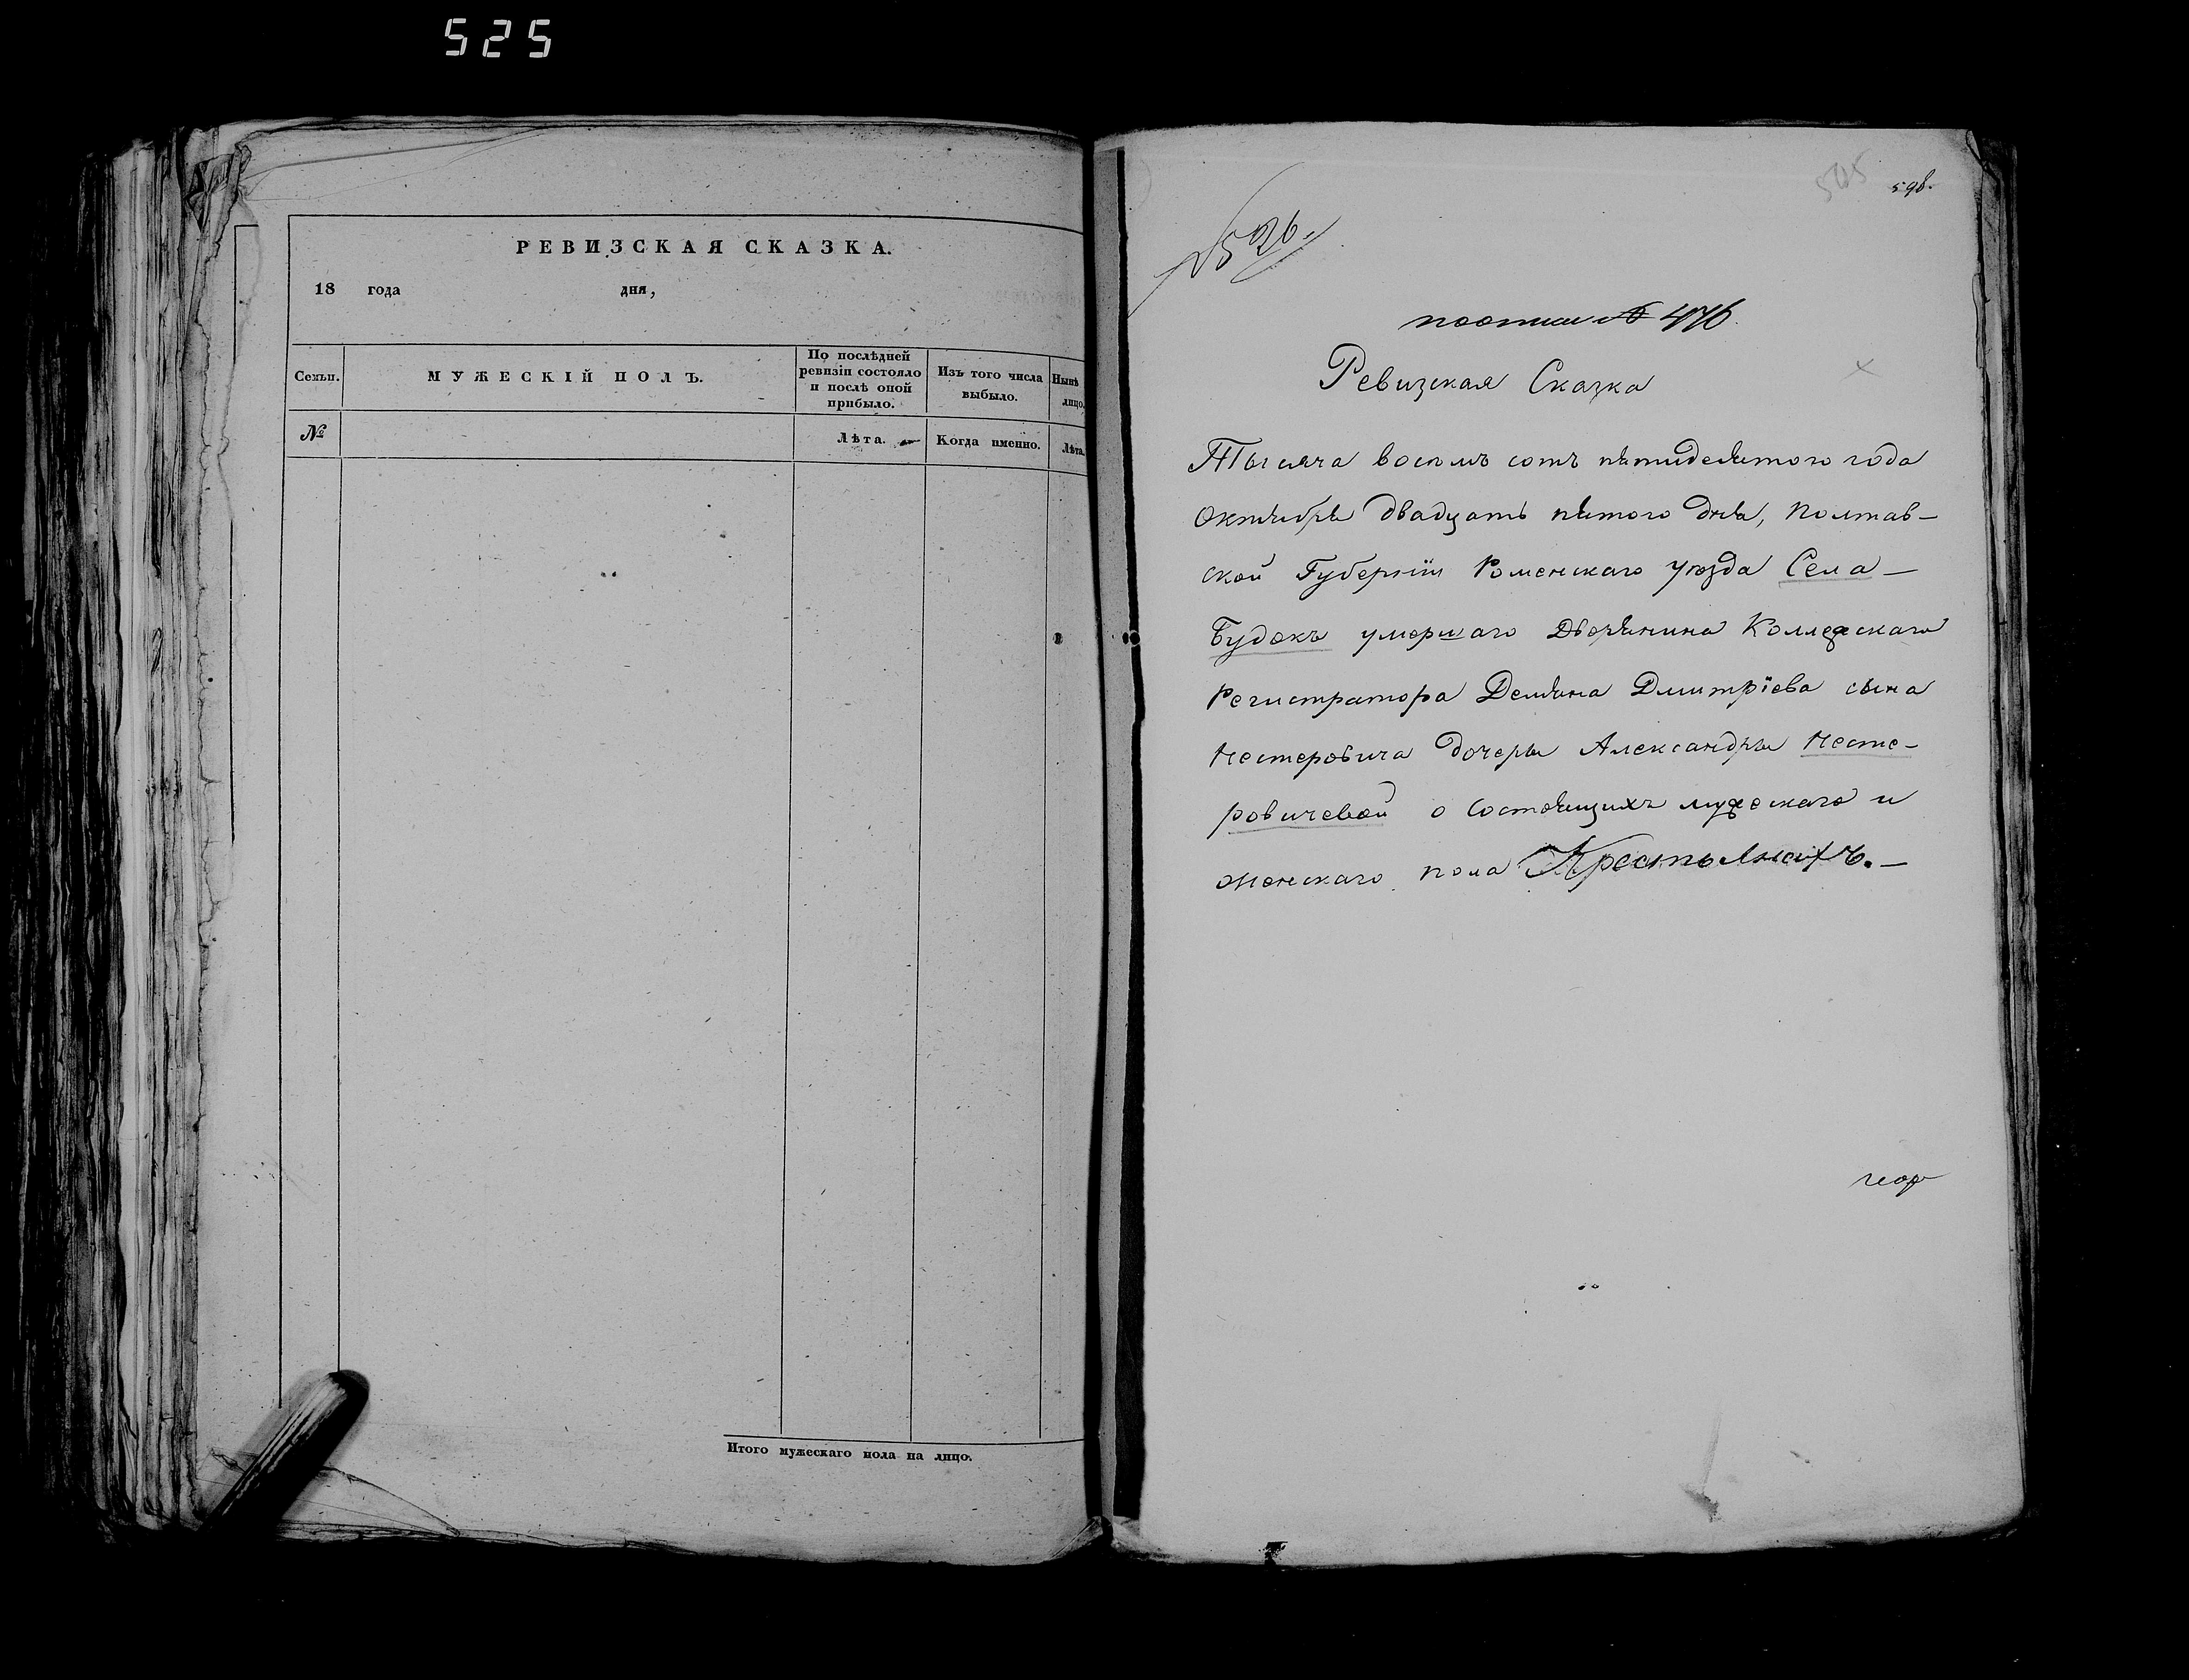 525
РЕВИЗСКАЯ СКАЗКА.
18 года дня,
Семьи.
МУЖЕСКІЙ ПОЛЪ.
По послѣдней
ревизіи состояло
и послѣ оной
прибыло.
Изъ того числа
выбыло.
Нынѣ
лицо.
№
Лѣта.
Когда именно.
Лѣта.
Итого мужескаго пола на лицо.
505
598.
526.
№ 476.
Ревизская Сказка
Тысяча восемь сотъ пятидесятого года
Октября двадцать пятого дня, Полтав-
ской Губерніи Роменскаго уѣзда Села
Будокъ умершаго Дворянина Коллежскаго
Регистратора Демяна Дмитріева сына
Нестеровича дочеры Александры Несте-
ровичевой о состоящихъ мужескаго и
женскаго пола Крестьянахъ.